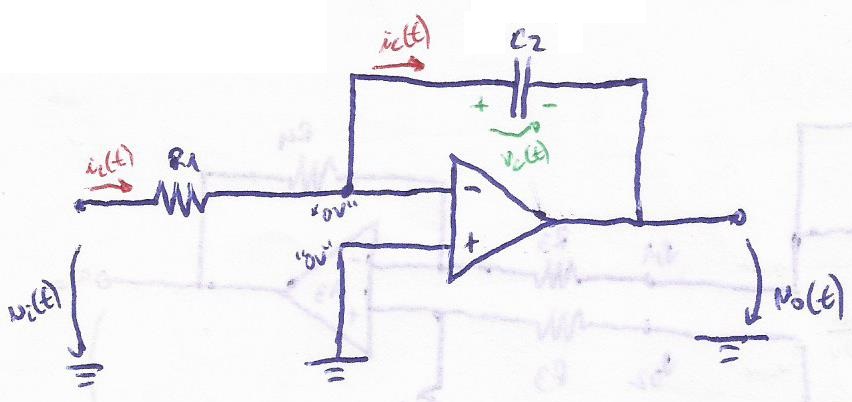 ic(t)
C2
+ -
vc(t)
ii(t)
R1
"0V"
-
"0V"
+
vi(t)
vo(t)